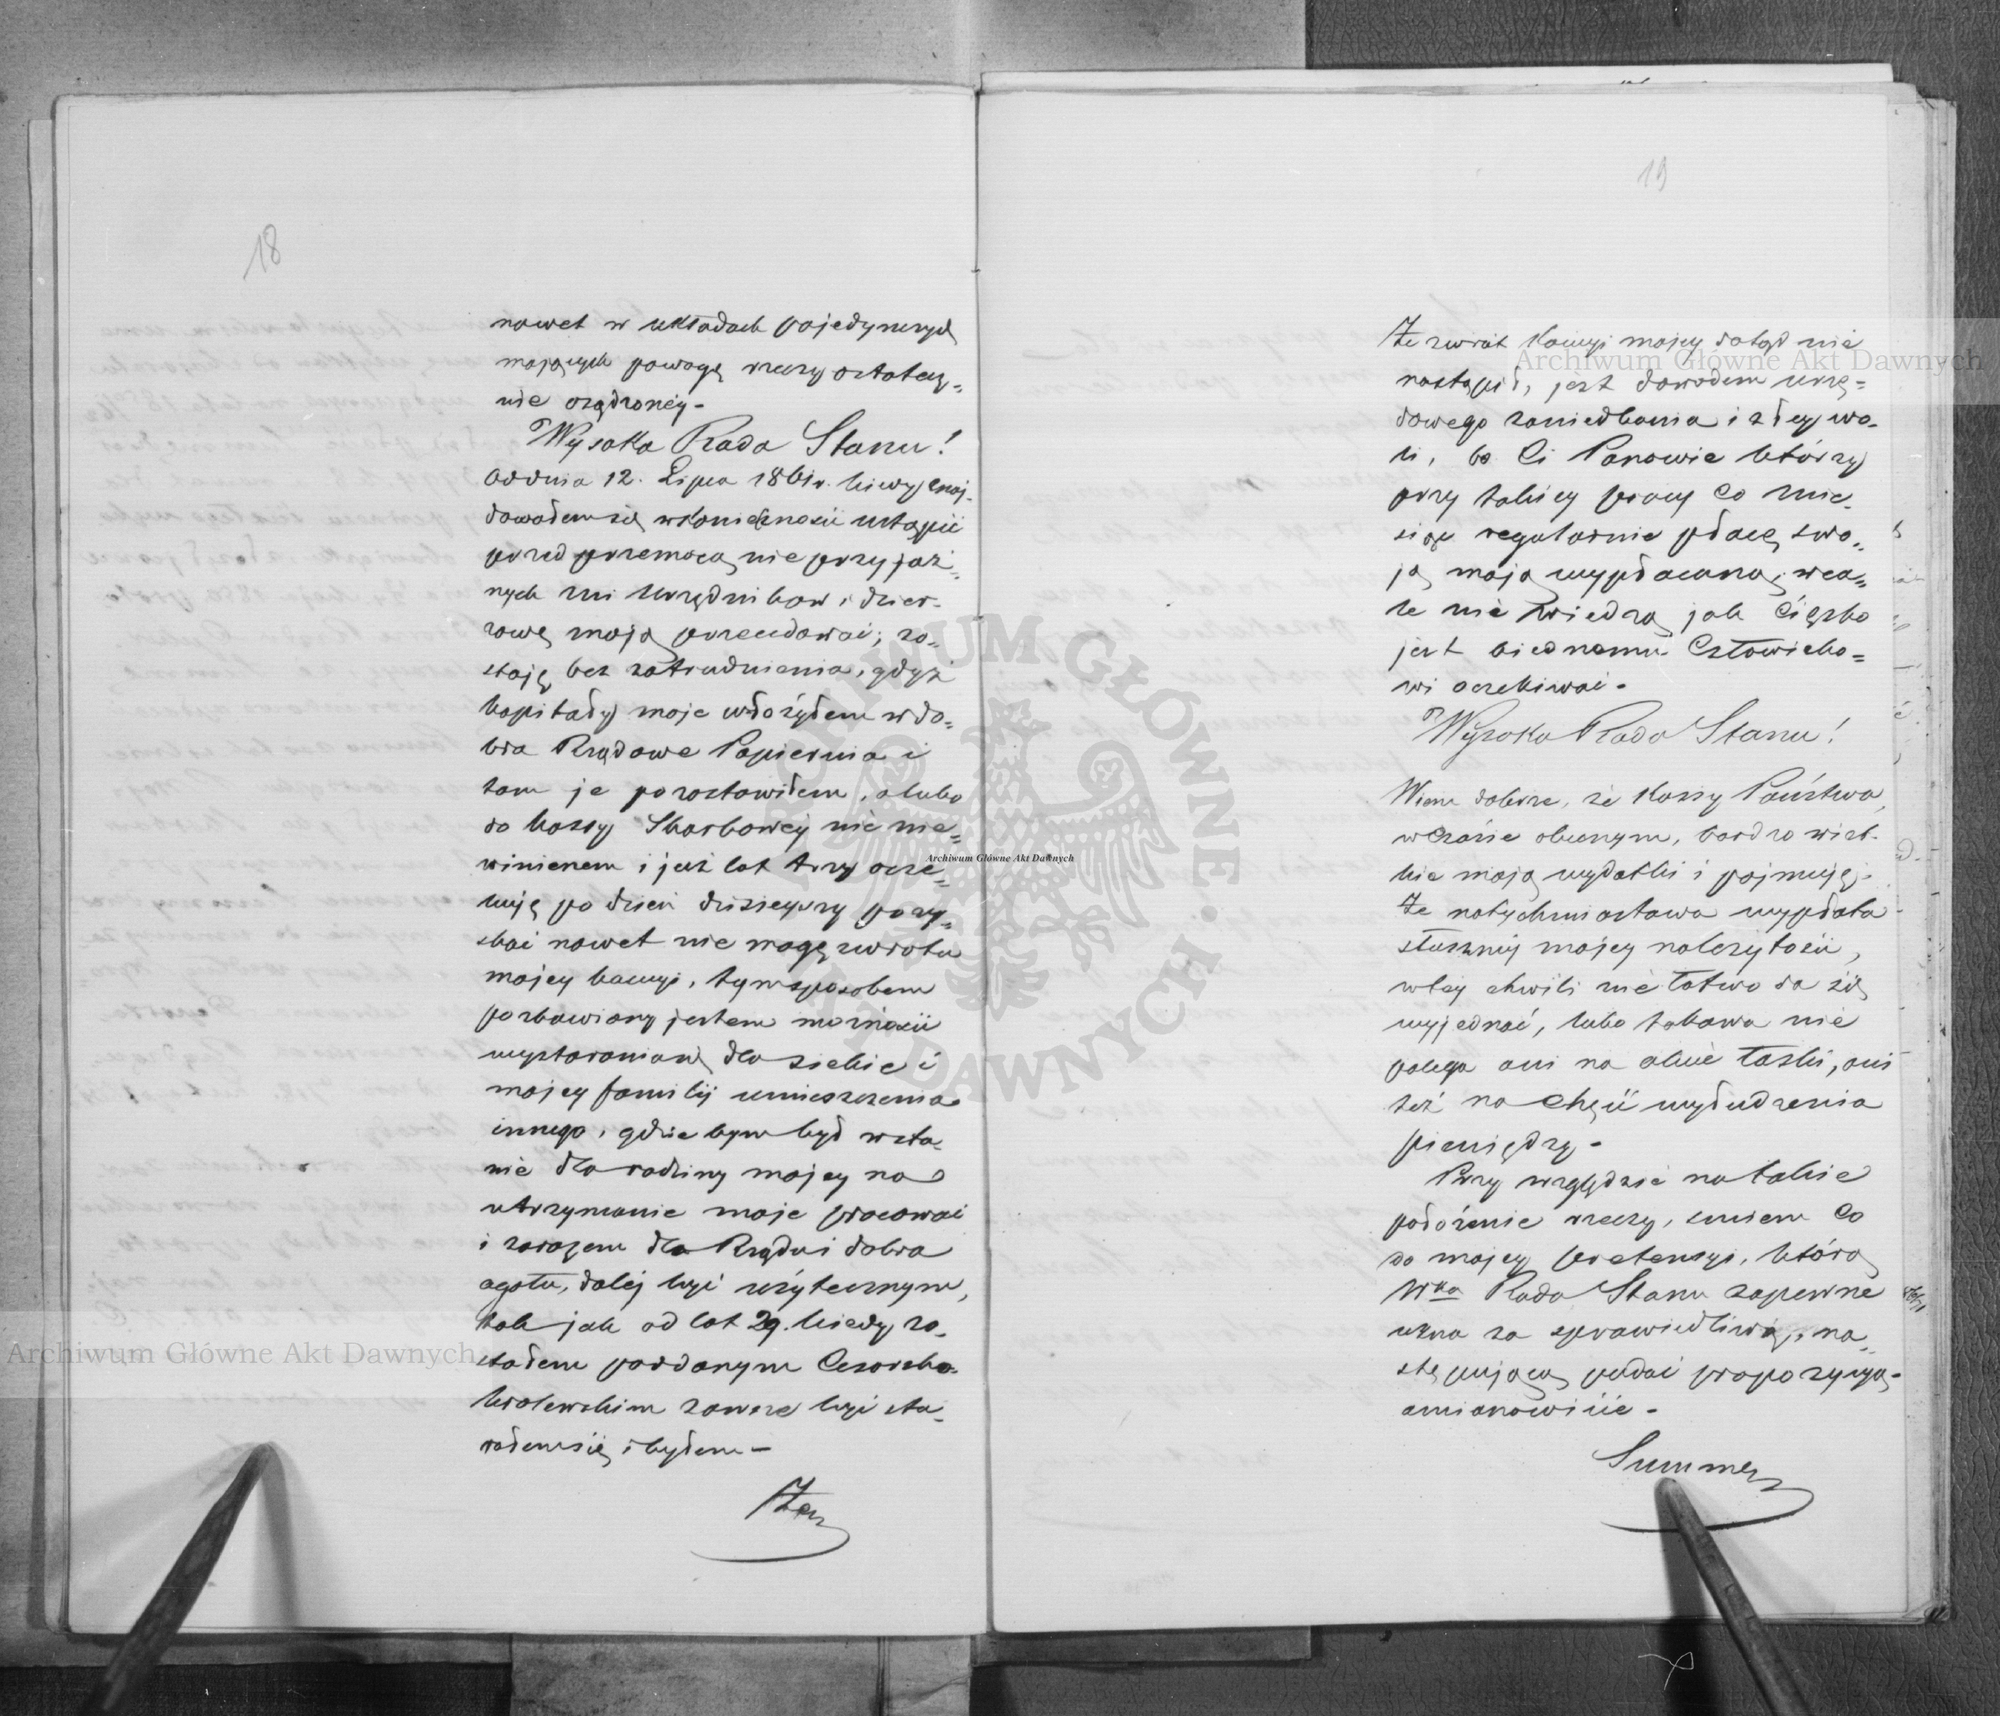 18
nawet w układach pojedynczych
mających powagę rzeczy ostatecz=
nie osądzonéy-
Wysoka Rada Stanu!
Od dnia 12. Lipca 1861 r. kiedy znaj-
dowałem się w konieczności ustąpić
przed przemocą nie przyjaź=
nych mi Urzędników i dzier-
żawę moją przeudawać; zo-
staję bez zatrudnienia, gdyż
kapitały moje włożyłem w do=
bra Rządowe Papiernia i
tam je pozostawiłem, a lubo
do kassy Skarbowéy nic nie=
winienem i już lat trzy ocze=
kuję po dzień dzisieyszy pozy=
skać nawet nie mogę zwrotu
mojey kaucyi, tym sposobem
pozbawiony jestem możności
wystarania się dla siebie i
mojey familij umieszczenia
innego, gdzie bym był w sta=
nie dla rodziny mojey na
utrzymanie moje pracować
i zarazem dla Rządu i dobra
ogółu, daléj być użytecznym,
tak jak od lat 29. kiedy zo=
stałem poddanym Cesarsko-
królewskim zawsze być sta=
rałem się i byłem-
Że
19
Że zwrót Kaucyi mojey dotąd nie
nastąpił, jest dowodem urzę=
dowego zaniedbania i złey wo-
li, bo Ci Panowie którzy
przy takiey pracy co mie=
siąc regularnie płacę swo=
ją mają wypłacaną, wca=
le nie wiedzą jak Ciężko
jest biednemu Człowieko=
wi oczekiwać-
Wysoka Rado Stanu!
Wiem dobrze, że Kassy Państwa
w czasie obecnym, bardzo wiel-
kie mają wydatki i pojmuję-
że natychmiastowa wypłata
słuszney mojey należytości,
w tey chwili nie łatwo da się
wyjednać, lubo takowa nie
polega ani na akcie łaski, ani
też na chęci wyłudzenia
pieniędzy-
Przy względzie na takie
położenie rzeczy, śmiem co
do mojey pretensyi, którą
Wka Rada Stanu zapewne
uzna za sprawiedliwą, na=
stępującą podać propozycyą-
a mianowicie-
Summę
Archiwum Główne Akt Dawnych
Archiwum Główne Akt Dawnych
Archiwum Główne Akt Dawnych
ARCHIWUM GŁÓWNE • AKT DAWNYCH •